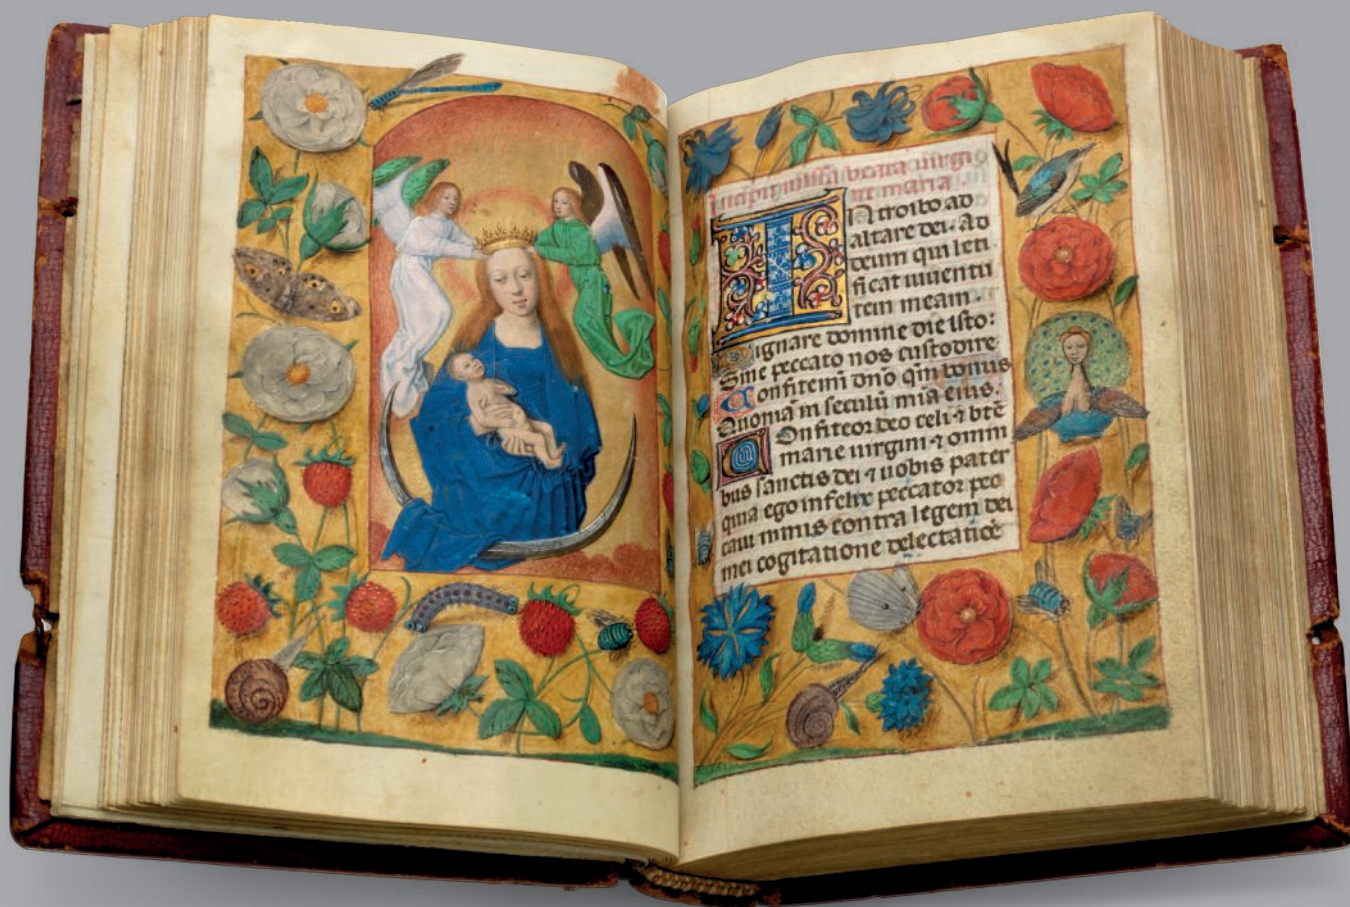 Incipit missa beata virgi
ne maria.
Introibo ad
altare dei. Ad
deum qui leti
ficat iuventu
tem meam.
Dignare domine die isto:
Sine peccato nos custodire
Confitemi dño qm̃ bonus
Quoniã in seculũ mia eius.
Onfiteor deo celi ⁊ btẽ
marie virgini ⁊ omni
bus sanctis dei ⁊ vobis pater
quia ego infelix peccator pec
caui nimis contra legem dei
mei cogitatione delectatiõe